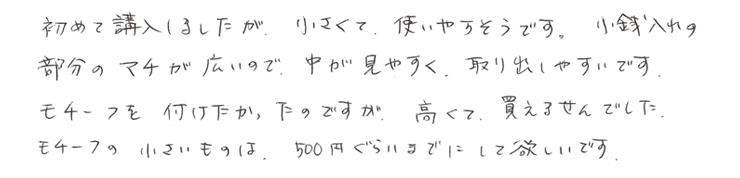 初めて講入しましたが、小さくて、使いやすそうです。小銭入れの
部分のマチが広いので、中が見やすく、取り出しやすいです。
モチーフを付けたかったのですが、高くて、買えませんでした。
モチーフの小さいものは、500円ぐらいまでにして欲しいです。